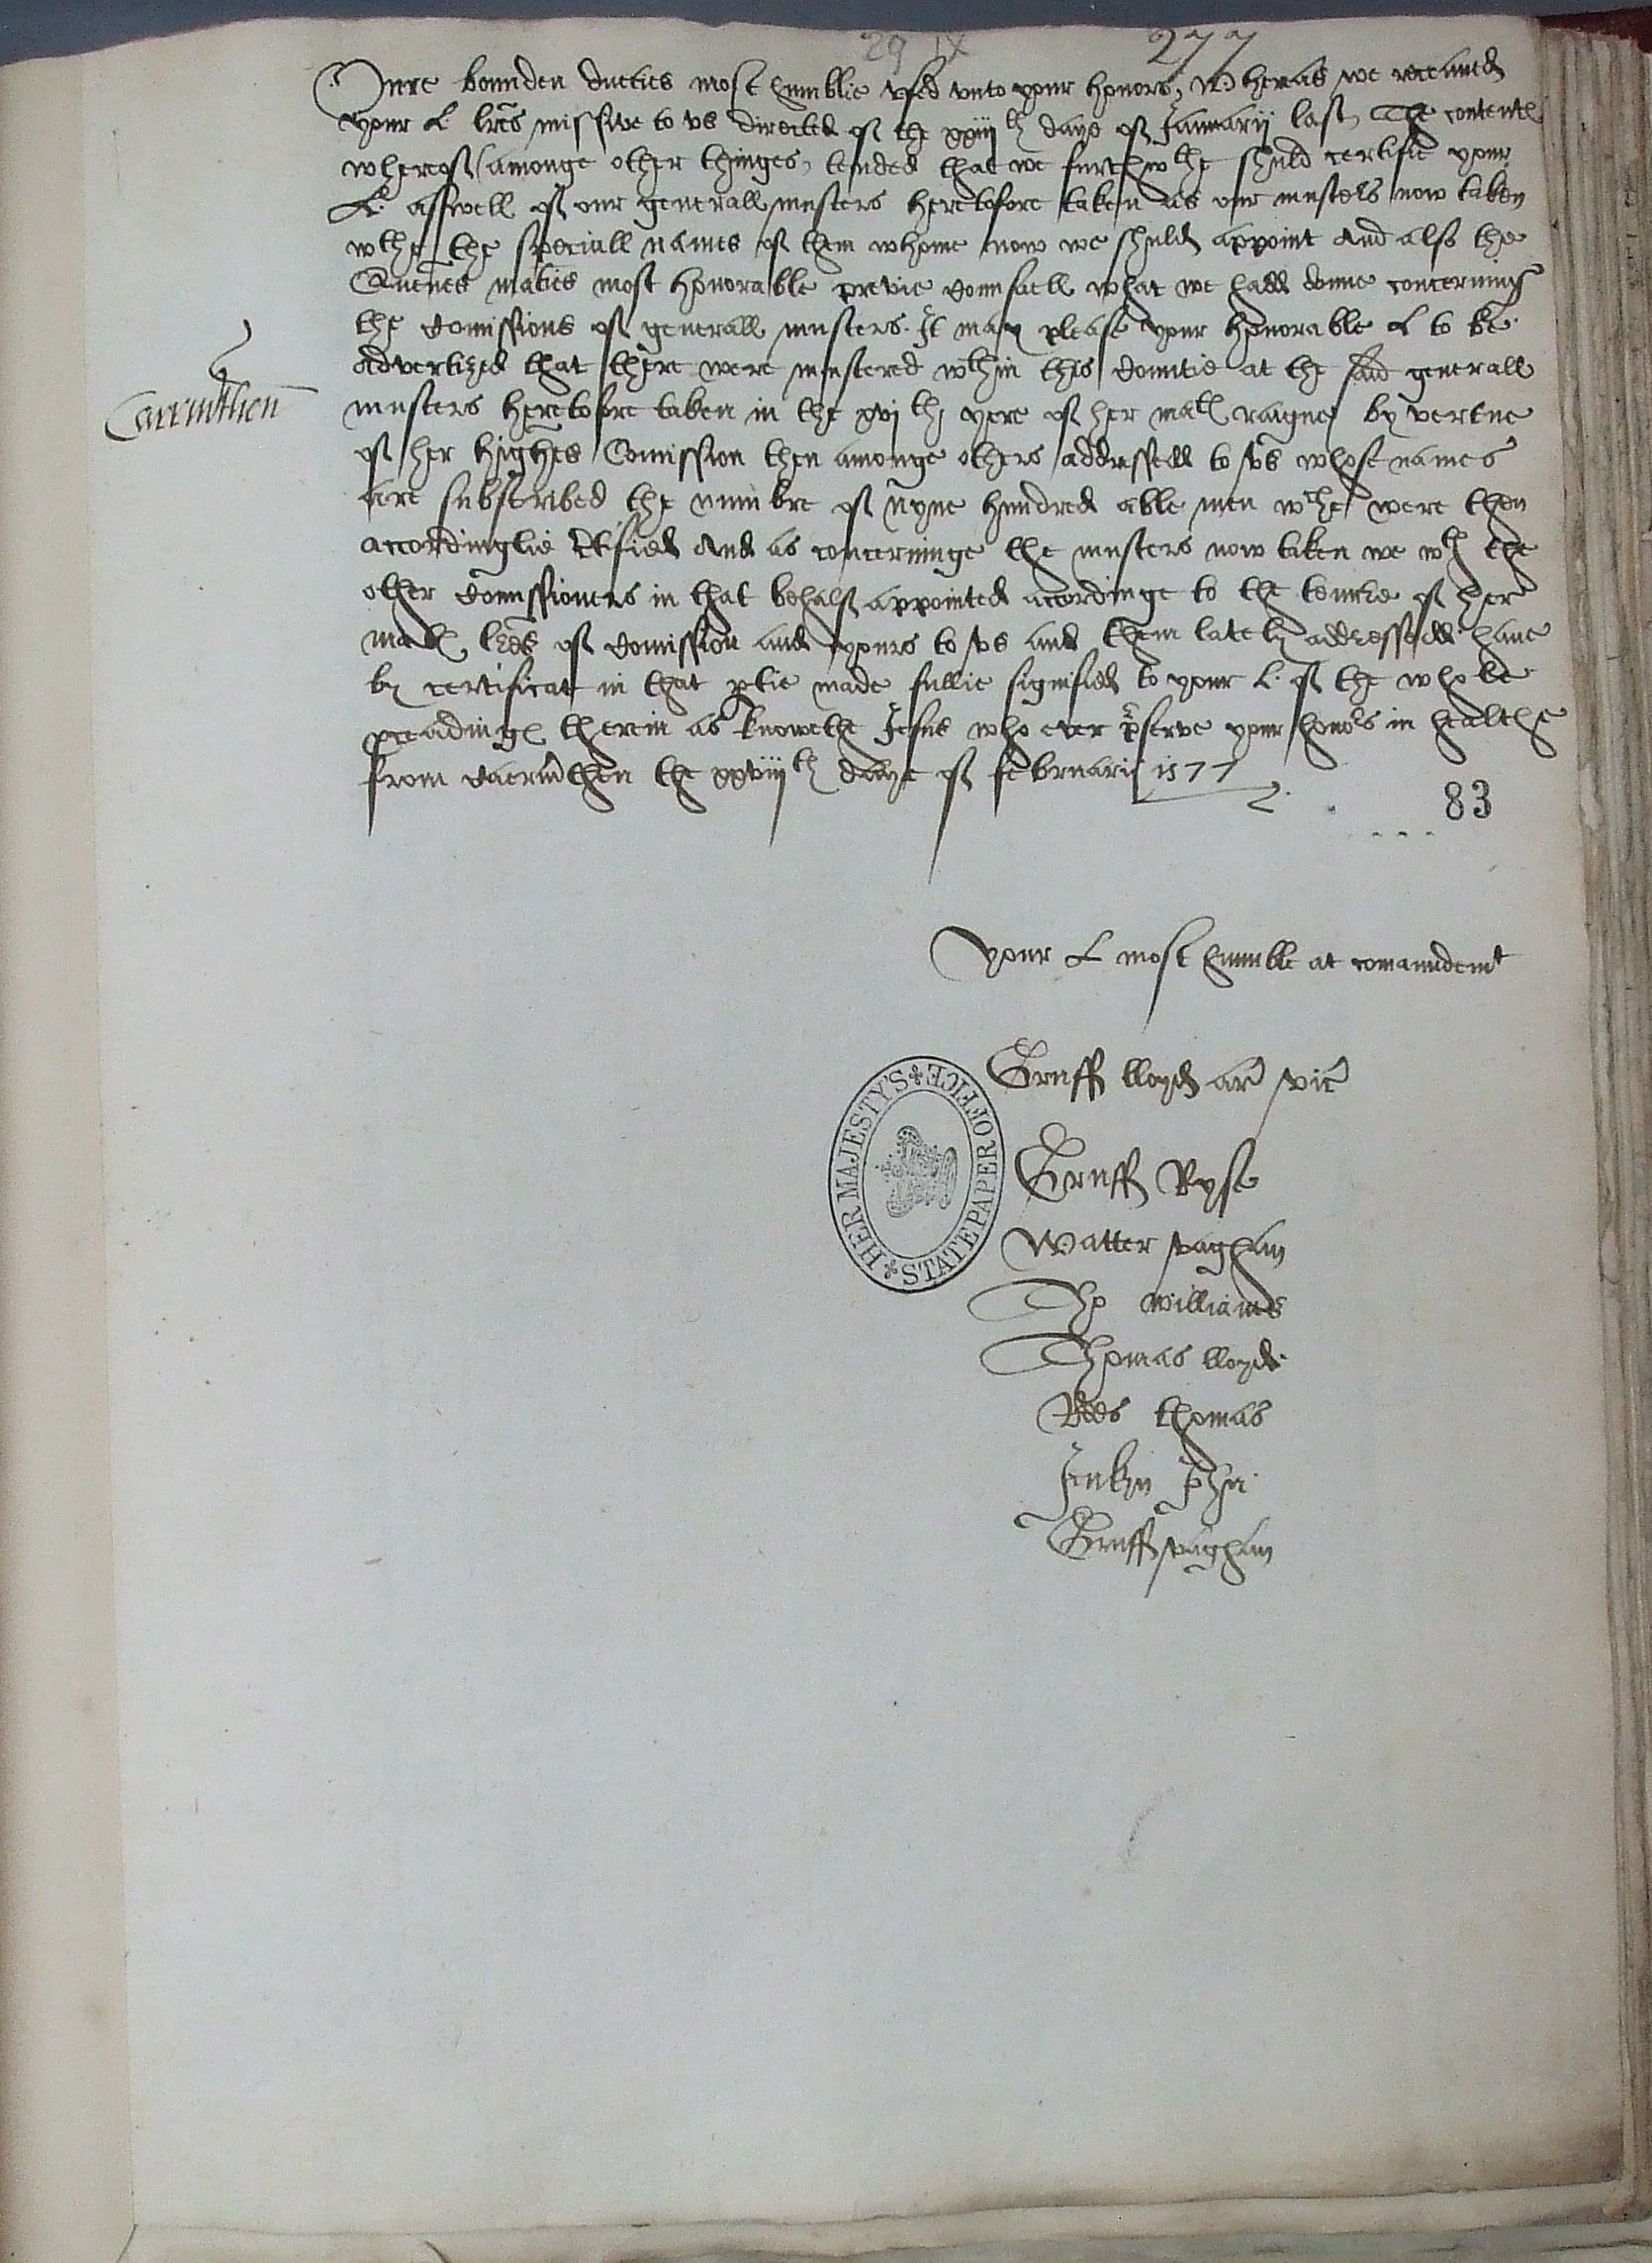 29 ix
277
Oure bounden dueties most humblie vsed vnto your honors, Wheras we receaued
your L lres missive to vs directed of the xxiiijth daye of Januarij last, The contente
whereof (amonge other thinges) tended that we furthwthe shuld certifie your
L. aswell of our generall musters heretofore taken as our musters now taken
wthe the speciall names of them whome now we shuld appoint And also the
Quenes maties most honorable previe Counsaell what we hadd donne concerning
the Comissions of generall musters. It may please your honorable L to be
advertized that there were mustered wthin this Countie at the said generall
musters heretofore taken in the xvjth yere of her mate raigne by vertue
of her highnes Comission then amonge others addressed to vs whose names
are subscribed the numbre of nyne hundred able men wche were then
accordinglie certified And as concerninge the musters now taken we wth the
other Comissioners in that behalf appointed accordinge to the tenure of her
mate lres of Comission and yours to vs and them lately addressedd have
by certificat in that ptie made fullie signified to your L. of the whole
pceadinge therein as knowethe Jesus who ever pserve your honors in healthe
from Caermthen the xxviijth daye of februarij 1577
Carrmthen
83
Your L most humble at comaundemt
Gruff lloyd ar vic
Gruff Ryse
Walter vaghan
Tho williams
Thomas lloyde
Rees thomas
Jenkyn John
Gruff vaghan
HER MAJESTY'S STATE PAPER OFFICE